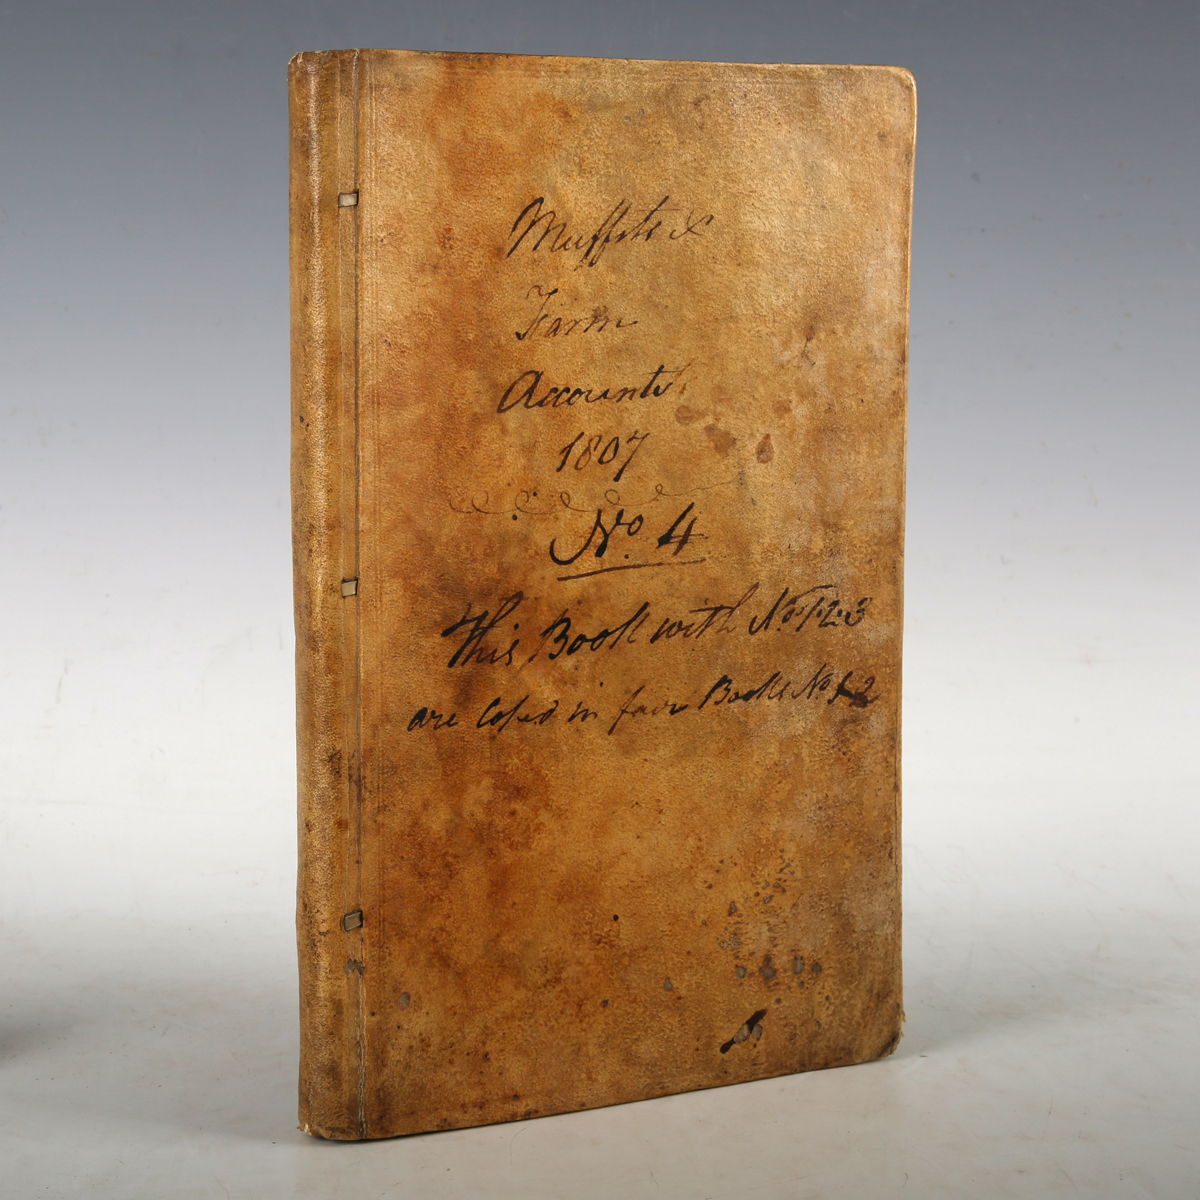 Muffits &
Farm
Accounts
1807
No. 4
This Book with Nos. 1.2.3
are Copied in fair Books No 1 2